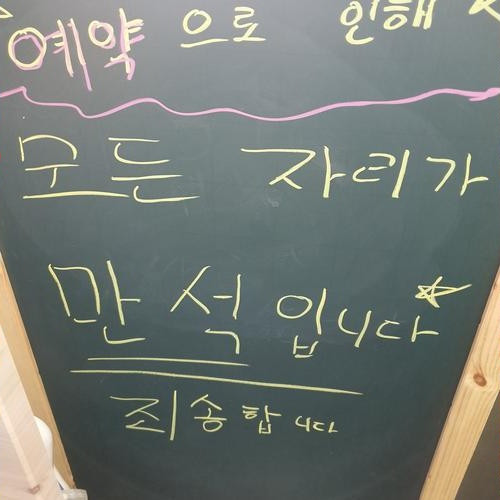 예약 으로 인해
모든 자리가
만석입니다
죄송합니다